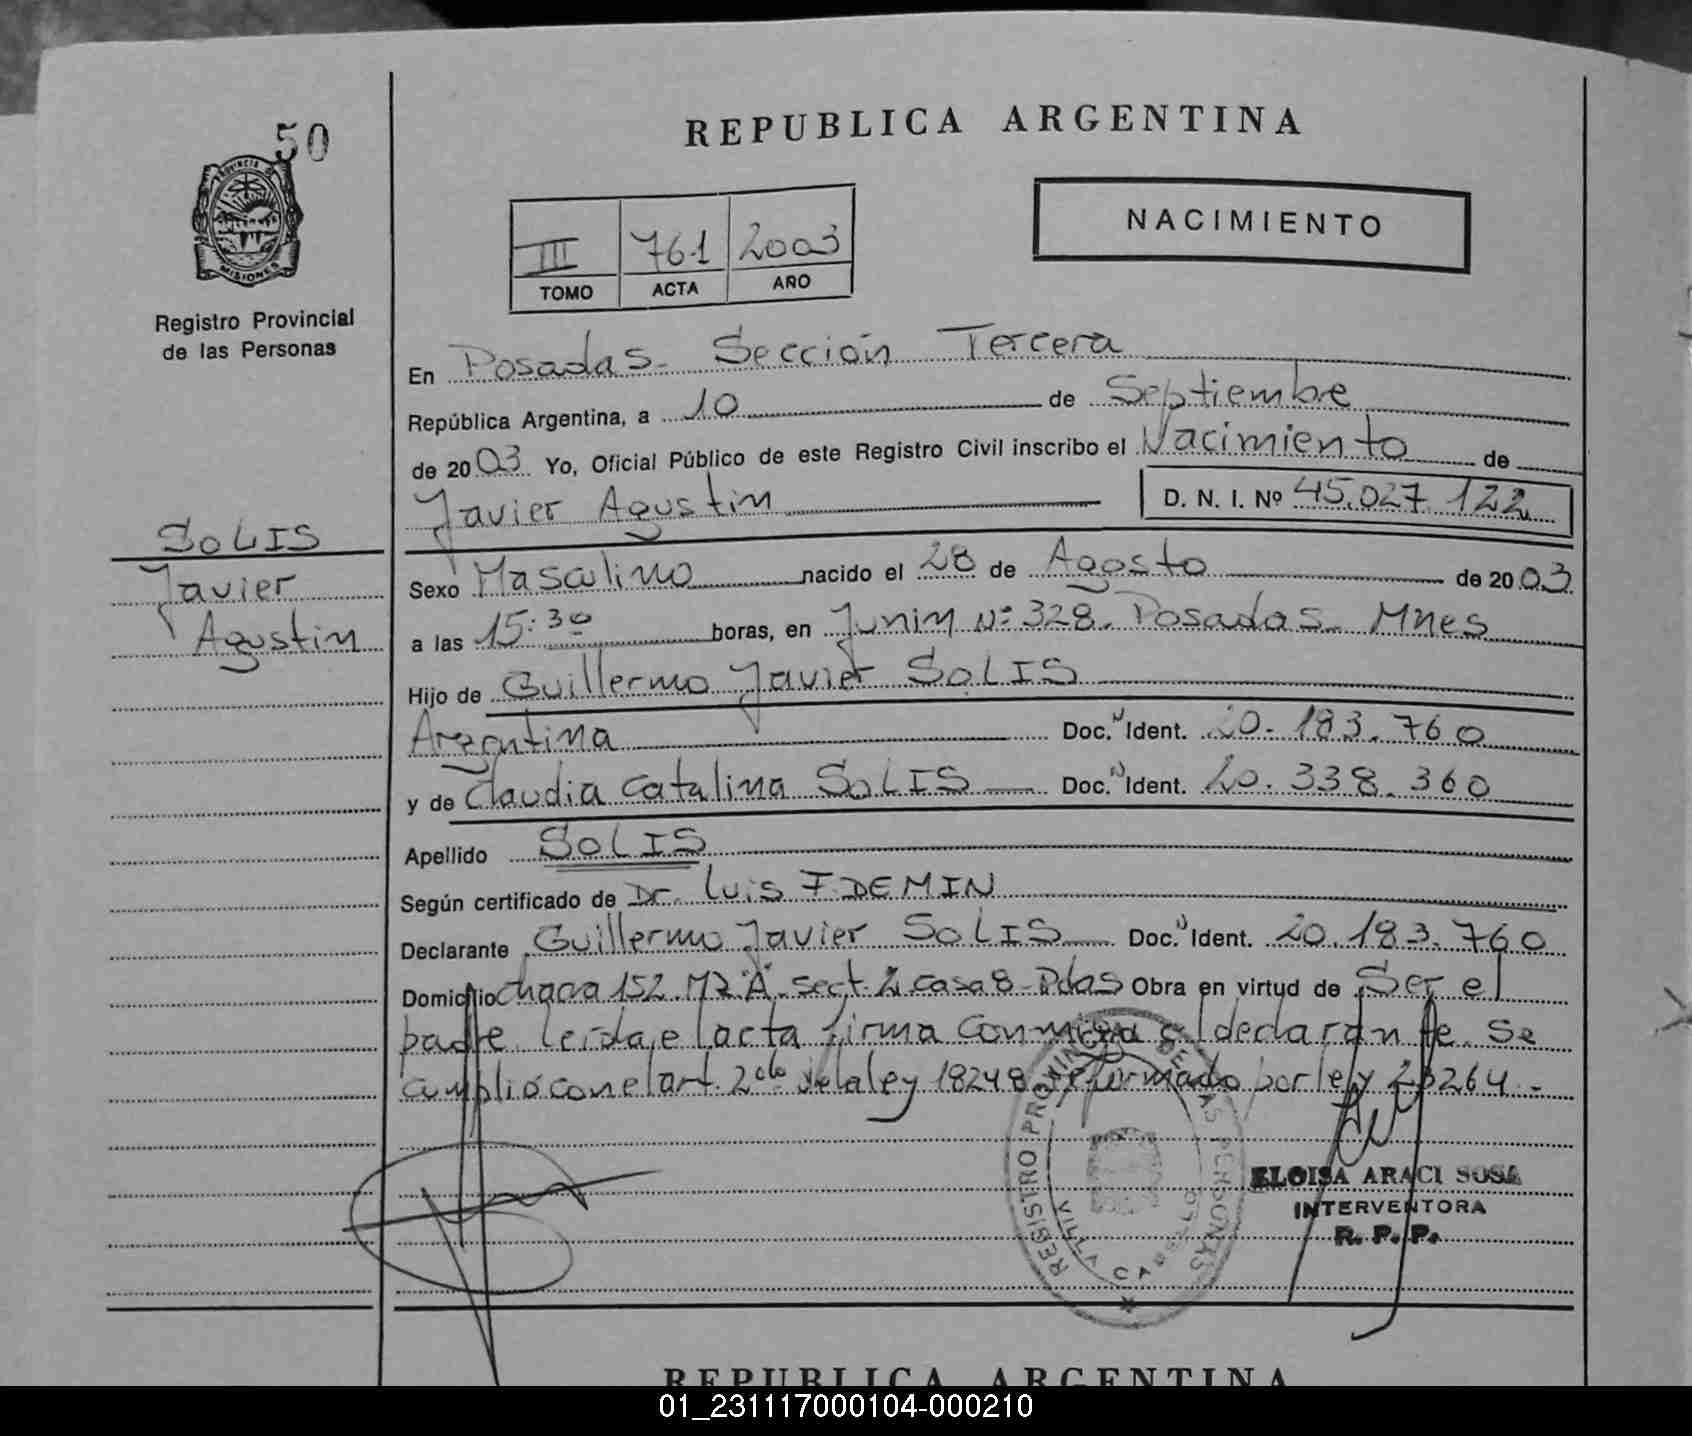 50
REPUBLICA ARGENTINA
PROVINCIA
MISIONES
NACIMIENTO
III 761 2003
TOMO ACTA AÑO
Registro Provincial
de las Personas
En Posadas- Sección Tercera
República Argentina, a 10 de Septiembre
de 2003 Yo, Oficial Público de este Registro Civil inscribo el Nacimiento de
Javier Agustin D. N. I. Nº 45.027.122
SOLIS
Javier
Agustin
Sexo Masculino nacido el 28 de Agosto de 2003
a las 15:30 horas, en Junin Nº 328. Posadas- Mnes
Hijo de Guillermo Javier SOLIS
Argentina Doc. N Ident. 20.183.760
y de Claudia Catalina SOLIS Doc. N Ident. 20.338.360
Apellido SOLIS
Según certificado de Dr. Luis F. DEMIN
Declarante Guillermo Javier SOLIS Doc. N Ident. 20.183.760
Domicilio chacra 152 Mz "A" sect. 2 casa 8- Pdas Obra en virtud de Ser el
padre. leida el acta firma conmigo el declarante. Se
cumplió con el art. 2do de la ley 18248 reformado por ley 23264.-
REGISTRO PROVINCIAL DE LAS PERSONAS
ELOISA ARACI SOSA
INTERVENTORA
R. P. P.
REPUBLICA ARGENTINA
01_231117000104-000210